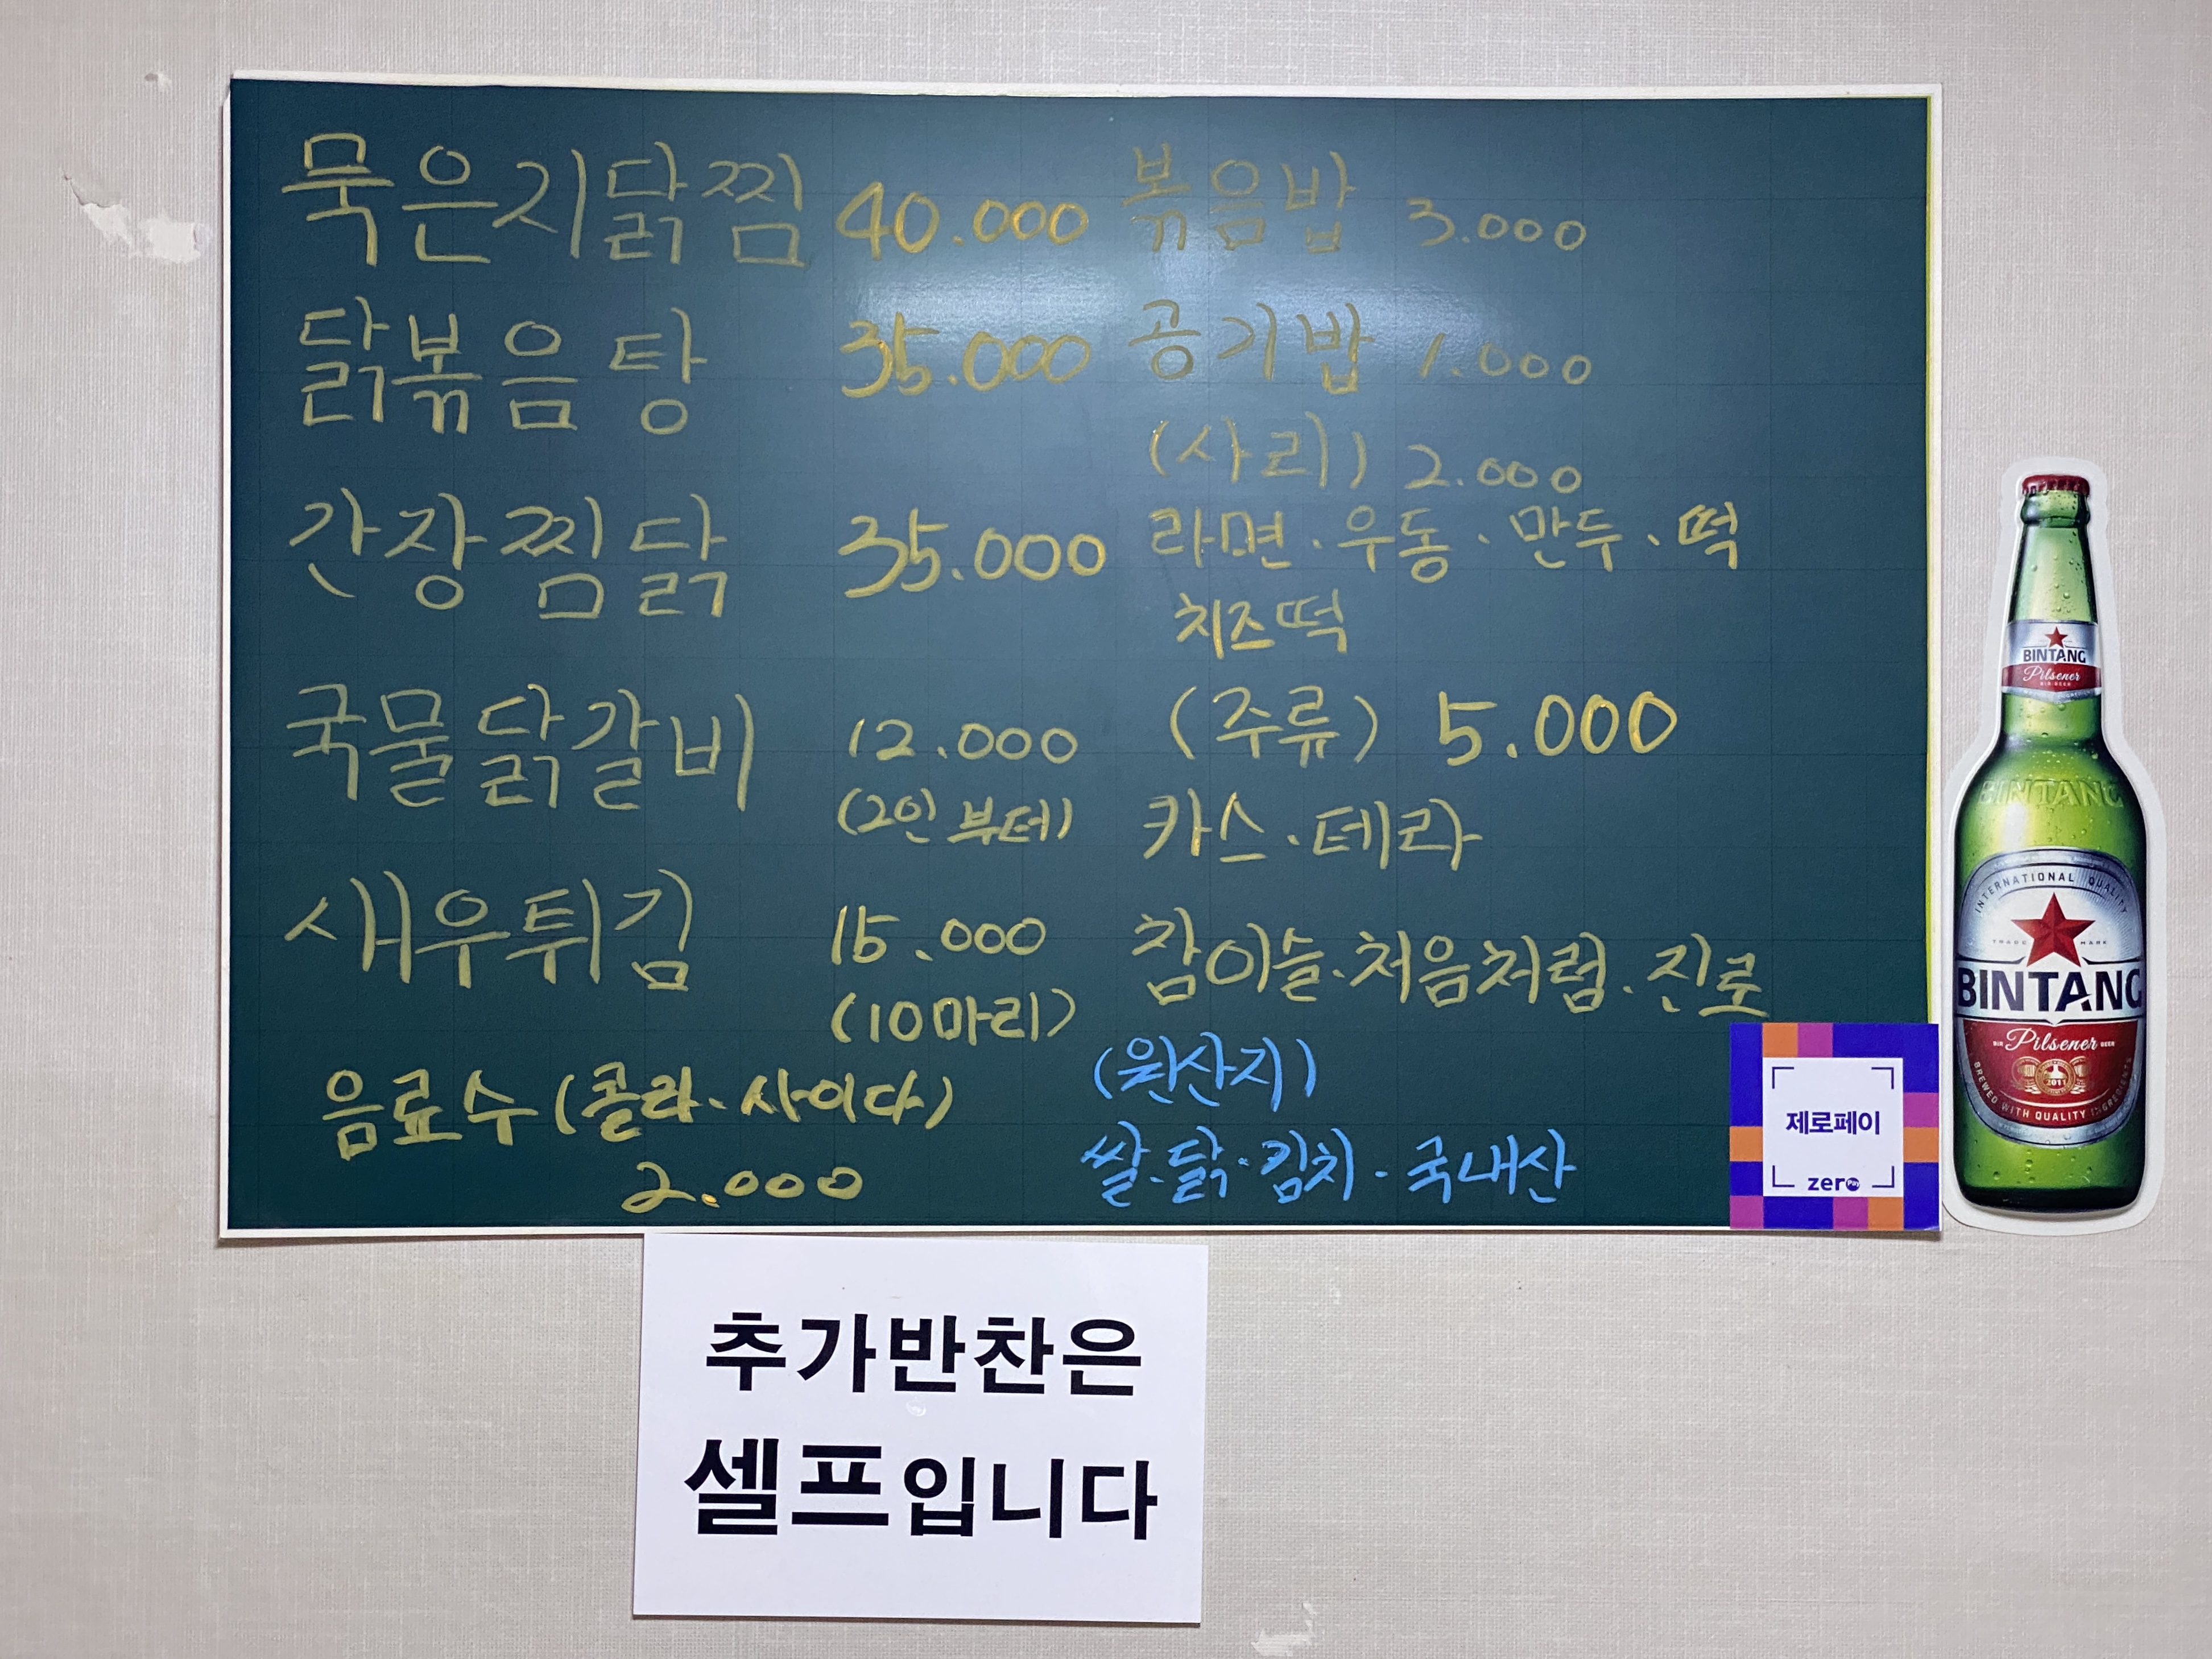 묵은지닭찜 40.000
닭볶음탕 35.000
간장찜닭 35.000
국물닭갈비 12.000
(2인 부터)
새우튀김 15.000
(10마리)
음료수 (콜라. 사이다)
2.000
볶음밥 3.000
공기밥 1.000
(사리) 2.000
라면·우동·만두·떡
치즈떡
(주류) 5.000
카스·테라
참이슬·처음처럼·진로
(원산지)
쌀·닭·김치·국내산
제로페이
zero Pay
추가반찬은
셀프입니다
BINTANG
Pilsener
BIR BEER
BINTANG
INTERNATIONAL QUALITY
TRADE MARK
BINTANG
BIR Pilsener BEER
2011
BREWED WITH QUALITY INGREDIENTS